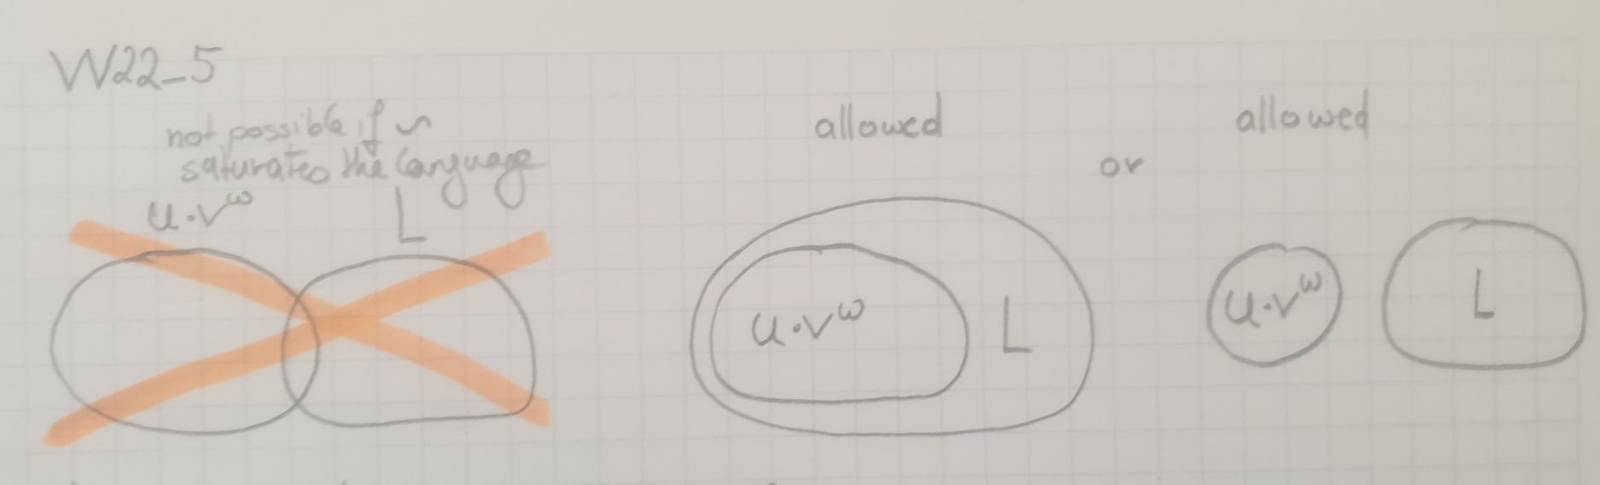 W22_5
not possible if ~
saturates the language
u·v^ω
L
allowed
u·v^ω
L
or
allowed
u·v^ω
L